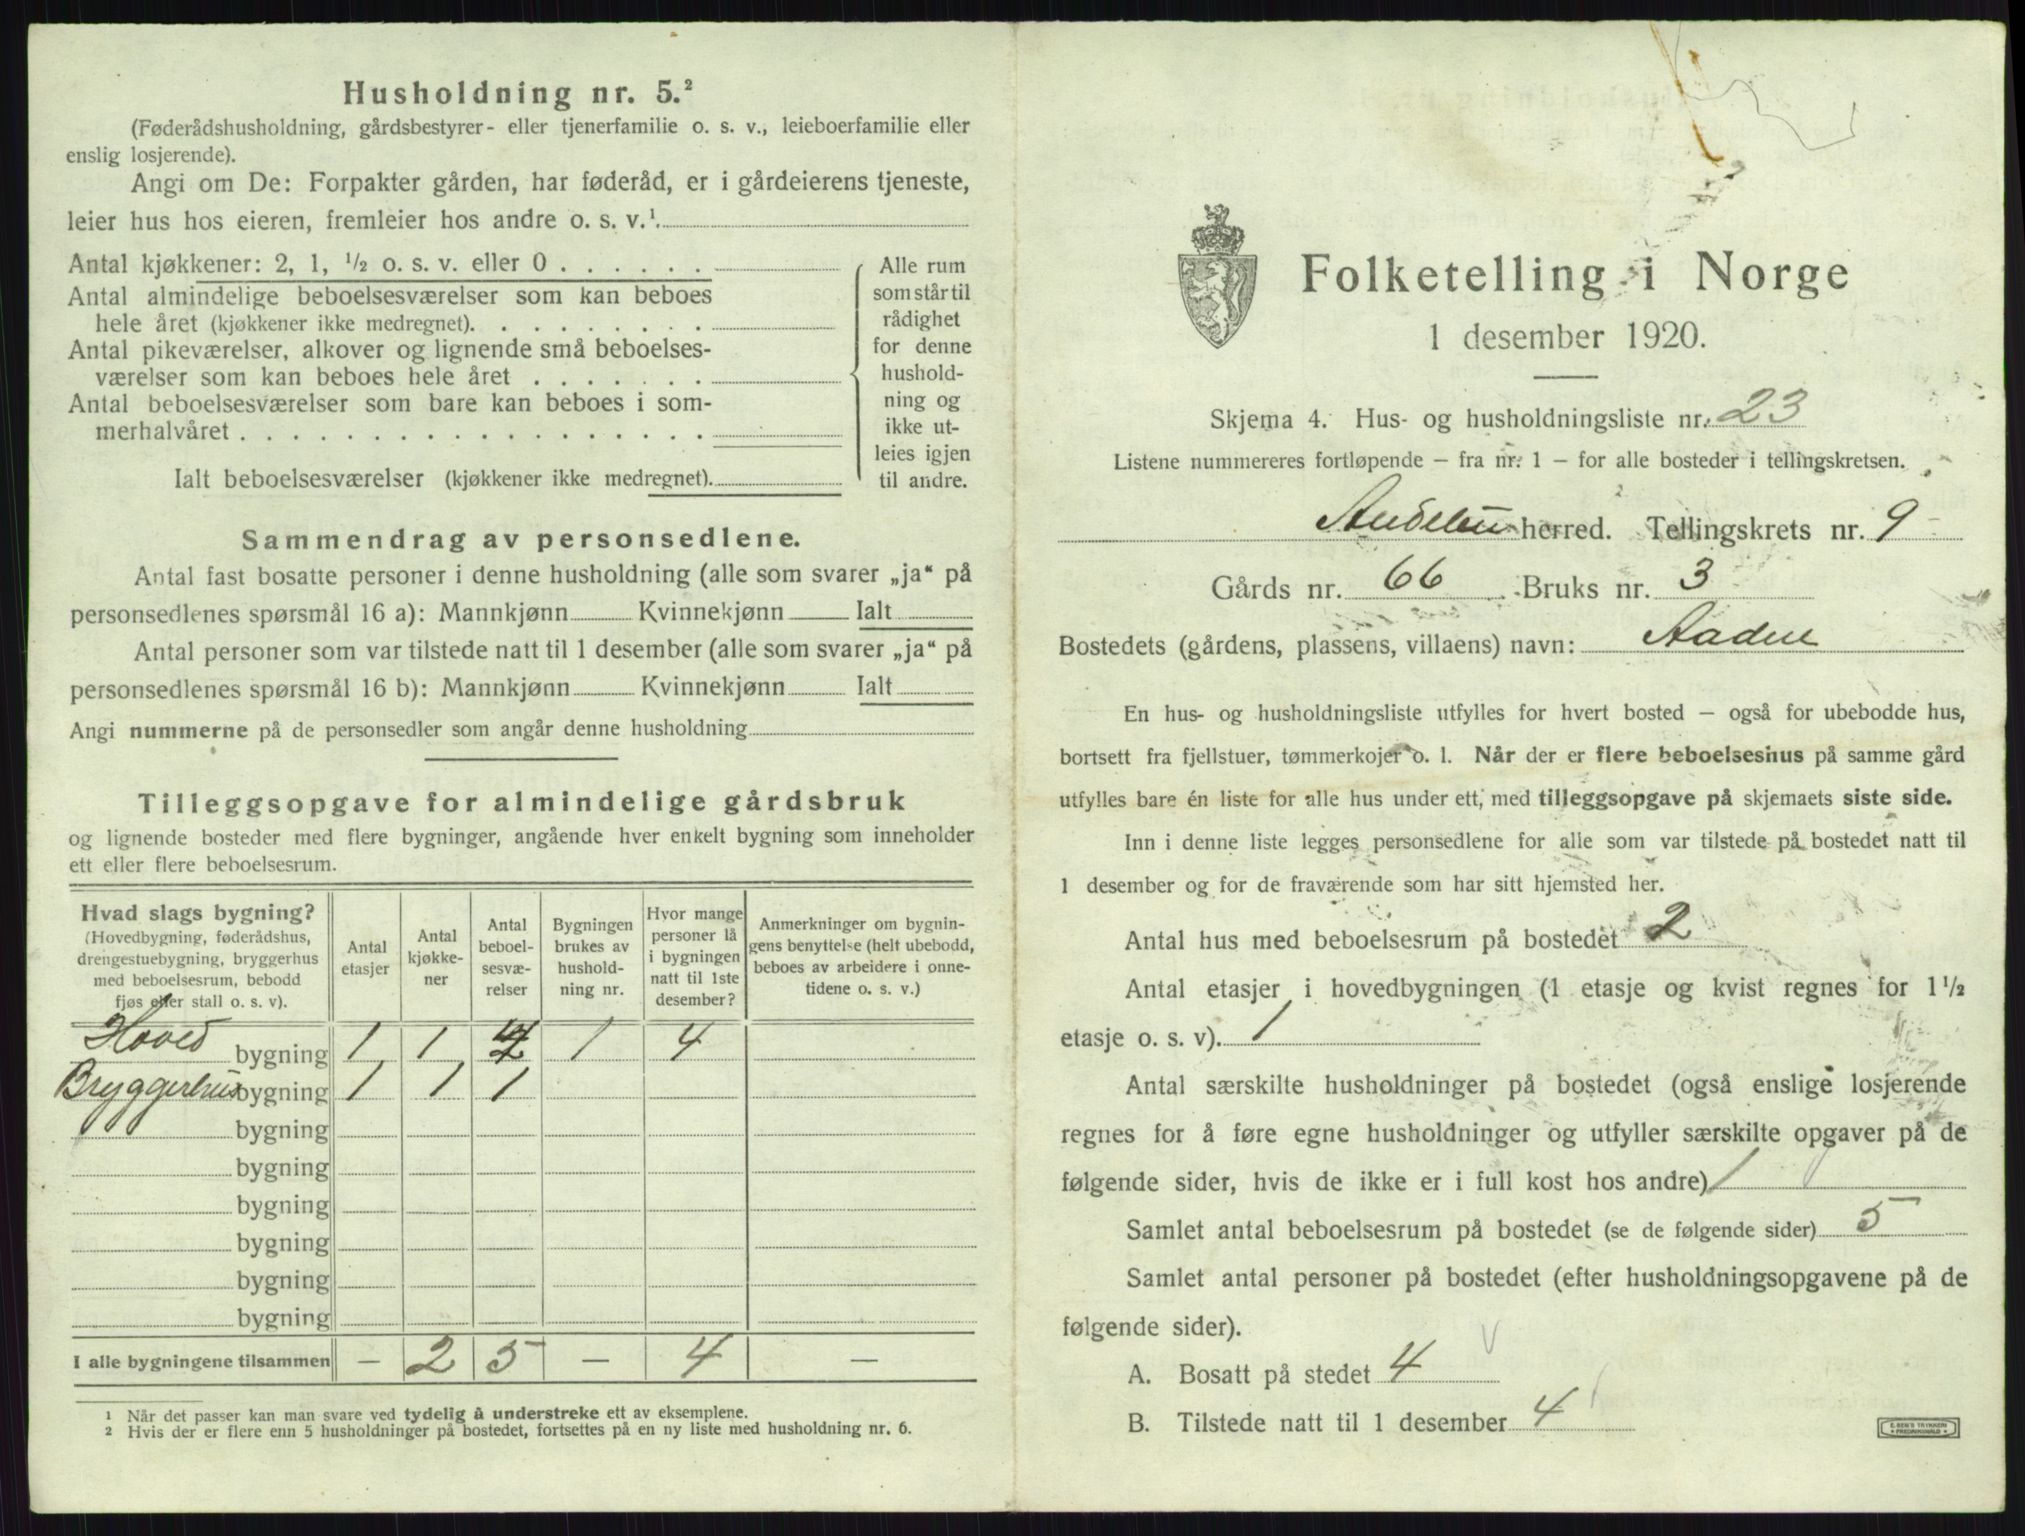 Husholdning nr. 5.²
(Føderådshusholdning, gårdsbestyrer- eller tjenerfamilie o. s. v., leieboerfamilie eller
enslig losjerende).
Angi om De: Forpakter gården, har føderåd, er i gårdeierens tjeneste,
leier hus hos eieren, fremleier hos andre o. s. v.¹.
Antal kjøkkener: 2, 1, ½ o. s. v. eller 0 . . . . . .
Antal almindelige beboelsesværelser som kan beboes
hele året (kjøkkener ikke medregnet). . . . . . . . .
Antal pikeværelser, alkover og lignende små beboelses-
værelser som kan beboes hele året . . . . . . .
Antal beboelsesværelser som bare kan beboes i som-
merhalvåret . . . . . . . . . . . . . . . . . .
Ialt beboelsesværelser (kjøkkener ikke medregnet).
Alle rum
som står til
rådighet
for denne
hushold-
ning og
ikke ut-
leies igjen
til andre.
Sammendrag av personsedlene.
Antal fast bosatte personer i denne husholdning (alle som svarer „ja“ på
personsedlenes spørsmål 16 a): Mannkjønn Kvinnekjønn Ialt
Antal personer som var tilstede natt til 1 desember (alle som svarer „ja“ på
personsedlenes spørsmål 16 b): Mannkjønn Kvinnekjønn Ialt
Angi nummerne på de personsedler som angår denne husholdning
Tilleggsopgave for almindelige gårdsbruk
og lignende bosteder med flere bygninger, angående hver enkelt bygning som inneholder
ett eller flere beboelsesrum.
Hvad slags bygning?
(Hovedbygning, føderådshus,
drengestuebygning, bryggerhus
med beboelsesrum, bebodd
fjøs eller stall o. s. v).
Antal
etasjer
Antal
kjøkke-
ner
Antal
beboel-
sesvæ-
relser
Bygningen
brukes av
hushold-
ning nr.
Hvor mange
personer lå
i bygningen
natt til 1ste
desember?
Anmerkninger om bygnin-
gens benyttelse (helt ubebodd,
beboes av arbeidere i onne-
tidene o. s. v.)
Hoved bygning 1 1 4 1 4
Bryggerhus bygning 1 1 1
bygning
bygning
bygning
bygning
bygning
bygning
I alle bygningene tilsammen — 2 5 — 4 —
1 Når det passer kan man svare ved tydelig å understreke ett av eksemplene.
2 Hvis der er flere enn 5 husholdninger på bostedet, fortsettes på en ny liste med husholdning nr. 6.
Folketelling i Norge
1 desember 1920.
Skjema 4. Hus- og husholdningsliste nr. 23
Listene nummereres fortløpende — fra nr. 1 — for alle bosteder i tellingskretsen.
Andebu herred. Tellingskrets nr. 9
Gårds nr. 66 Bruks nr. 3
Bostedets (gårdens, plassens, villaens) navn: Aadne
En hus- og husholdningsliste utfylles for hvert bosted — også for ubebodde hus,
bortsett fra fjellstuer, tømmerkojer o. l. Når der er flere beboelseshus på samme gård
utfylles bare én liste for alle hus under ett, med tilleggsopgave på skjemaets siste side.
Inn i denne liste legges personsedlene for alle som var tilstede på bostedet natt til
1 desember og for de fraværende som har sitt hjemsted her.
Antal hus med beboelsesrum på bostedet 2
Antal etasjer i hovedbygningen (1 etasje og kvist regnes for 1½
etasje o. s. v). 1
Antal særskilte husholdninger på bostedet (også enslige losjerende
regnes for å føre egne husholdninger og utfyller særskilte opgaver på de
følgende sider, hvis de ikke er i full kost hos andre) 1
Samlet antal beboelsesrum på bostedet (se de følgende sider) 5
Samlet antal personer på bostedet (efter husholdningsopgavene på de
følgende sider).
A. Bosatt på stedet 4
B. Tilstede natt til 1 desember 4